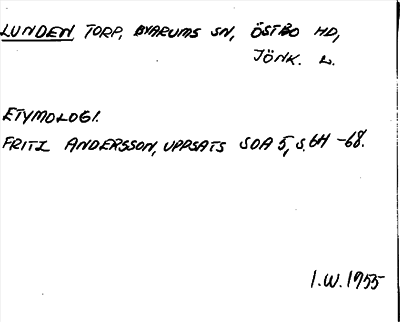 LUNDEN TORP, BYARUMS SN, ÖSTBO HD,
JÖNK. L.
ETYMOLOGI.
FRITZ ANDERSSON, UPPSATS SOA 5, S. 64-68.
I.W. 1955